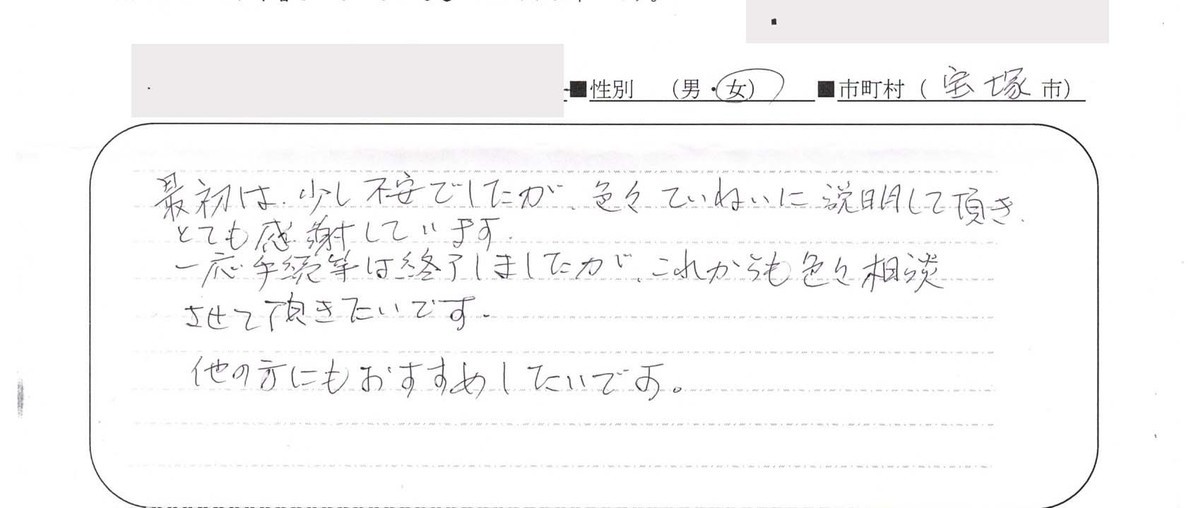 ■性別 (男・女) ■市町村 ( 宝塚 市)
最初は、少し不安でしたが、色々ていねいに説明して頂き、
とても感謝しています。
一応手続等は終了しましたが、これからも色々相談
させて頂きたいです。
他の方にもおすすめしたいです。